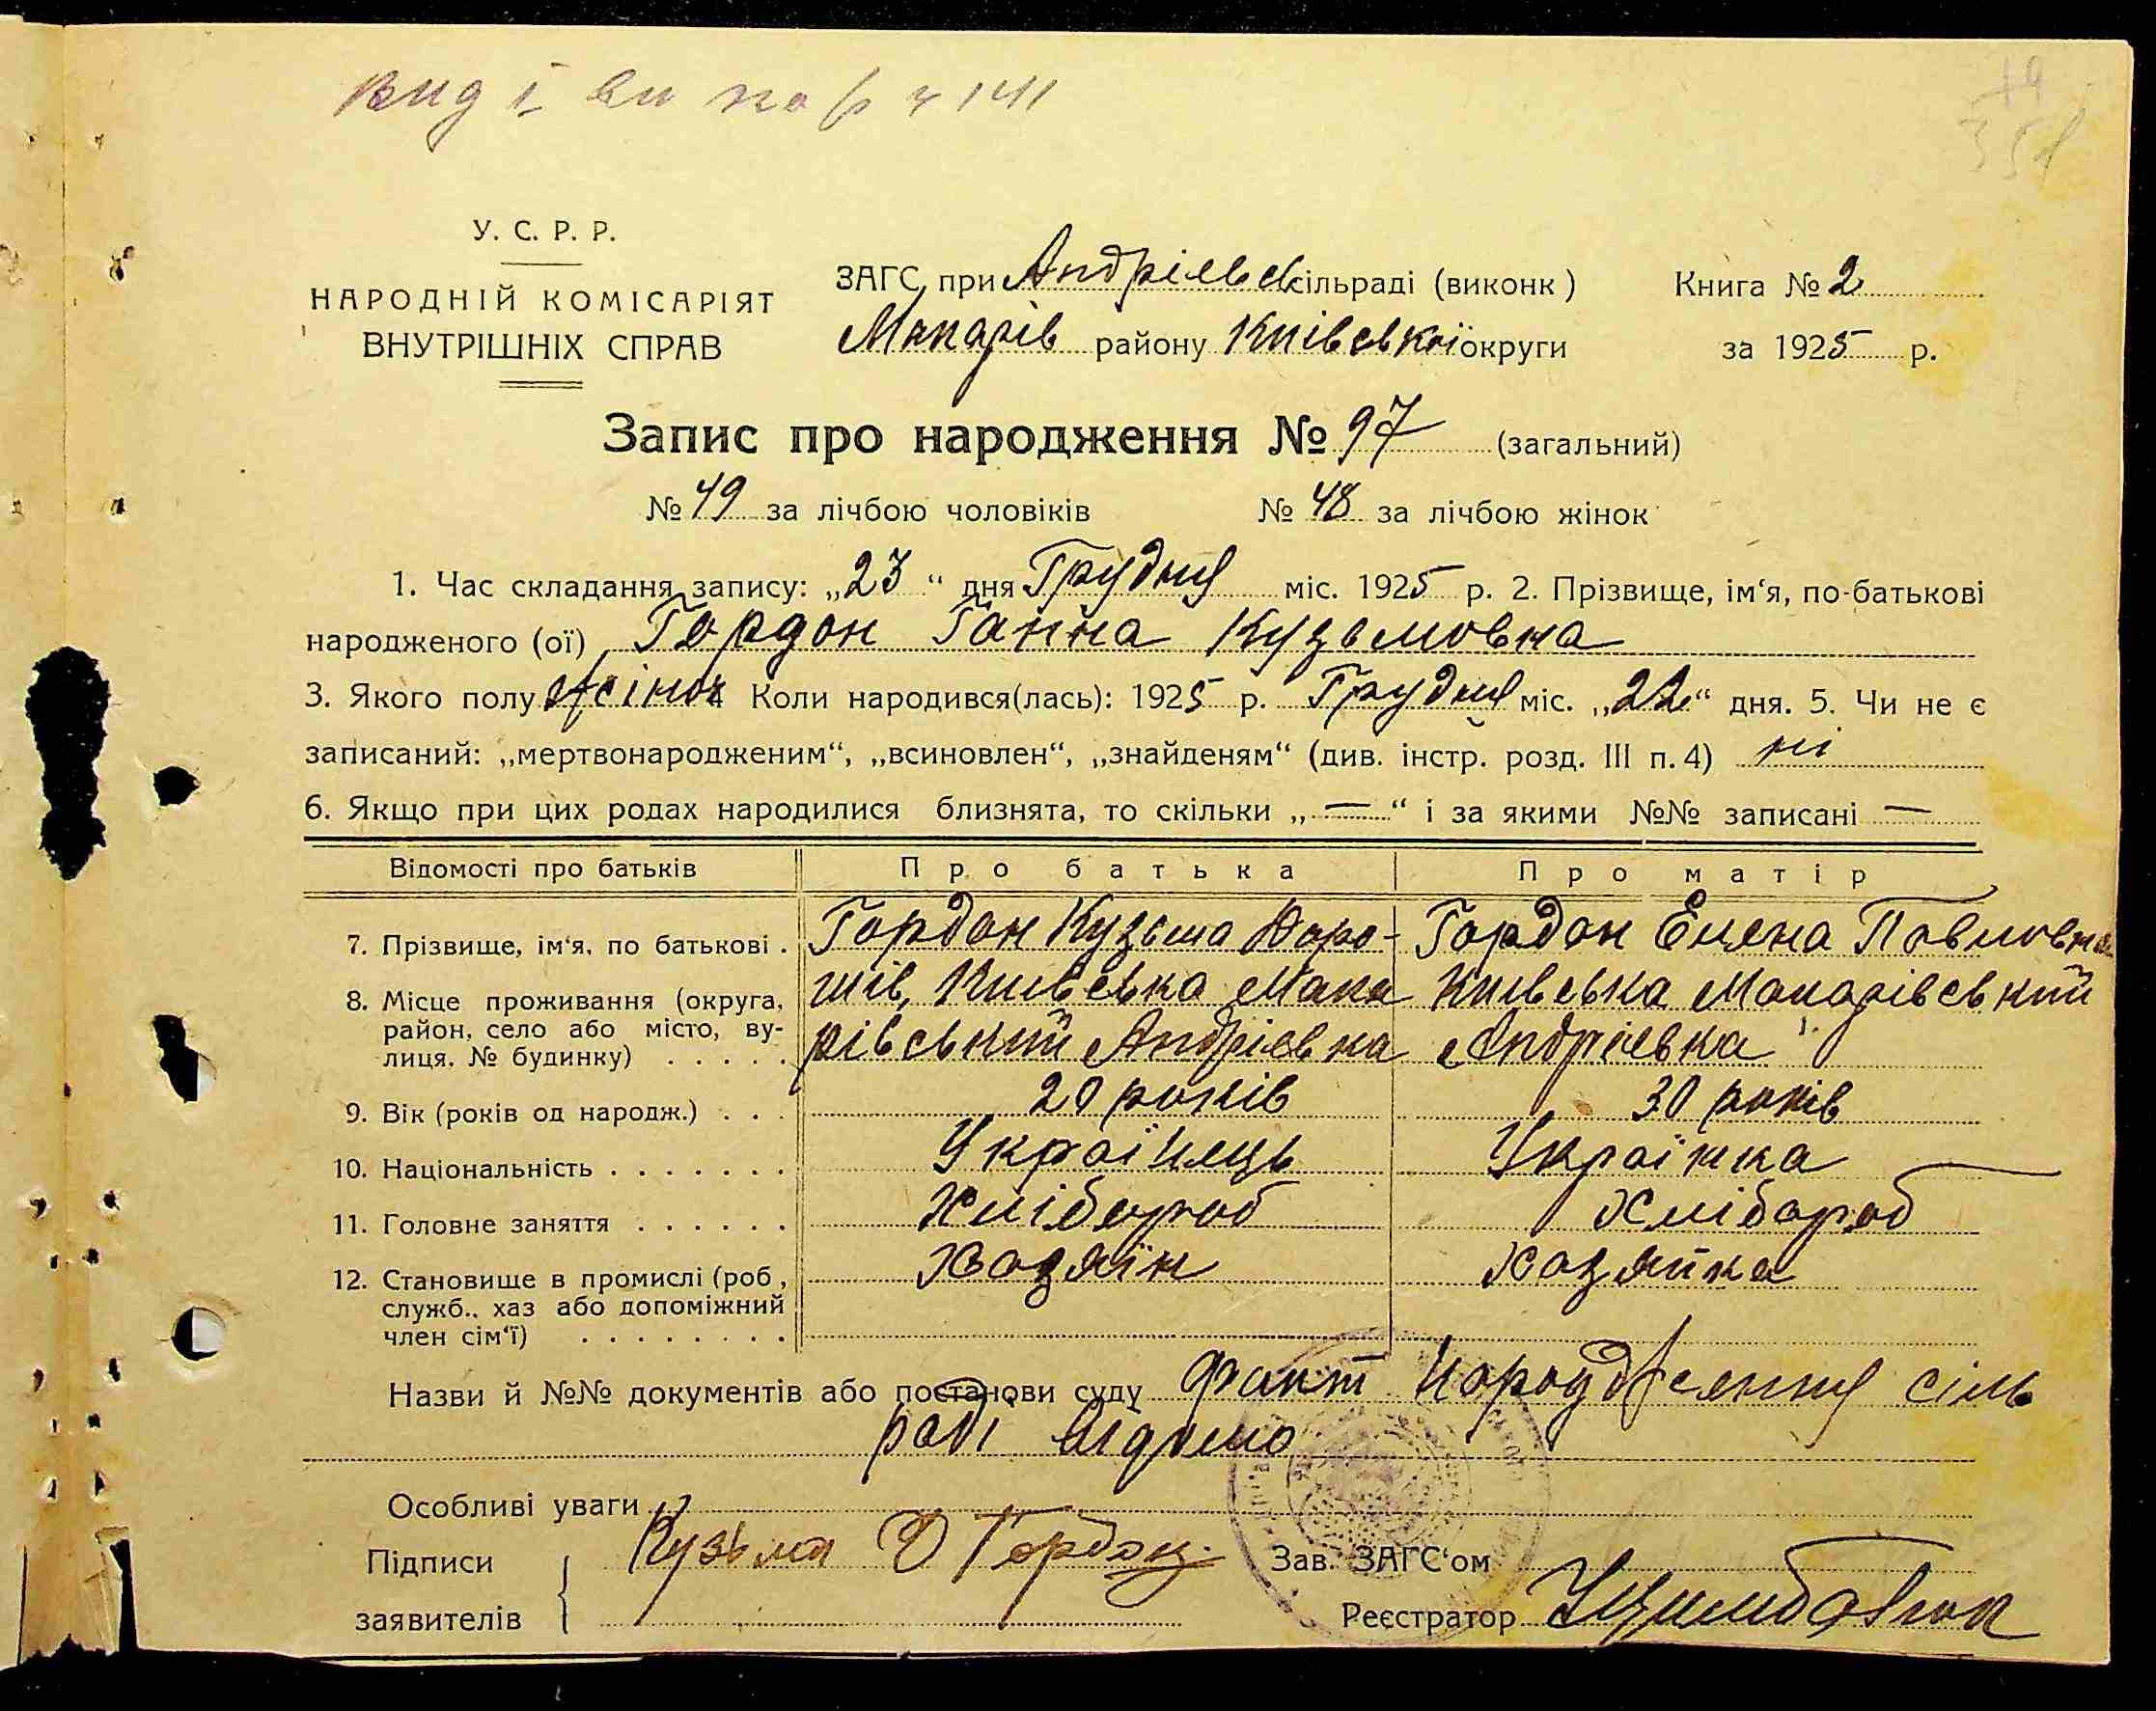 У. С. Р. Р.
НАРОДНІЙ КОМІСАРІЯТ
ВНУТРІШНІХ СПРАВ
ЗАГС при Андріевсь сільраді (виконк )
Макарів району Київської округи
Книга № 2
за 1925 р.
Запис про народження № 97 (загальний)
№ 49 за лічбою чоловіків № 48 за лічбою жінок
1. Час складання запису: „23“ дня Грудня міс. 1925 р. 2. Прізвище, ім‘я, по-батькові
народженого (ої) Гордон Ганна Кузьмовна
3. Якого полу жіноч Коли народився(лась): 1925 р. Грудня міс. „22“ дня. 5. Чи не є
записаний: „мертвонародженим“, „всиновлен“, „знайденям“ (див. інстр. розд. III п. 4) ні
6. Якщо при цих родах народилися близнята, то скільки „—“ і за якими №№ записані —
Відомості про батьків Про батька Про матір
7. Прізвище, ім‘я, по батькові . Гордон Кузьма Доро- Гордон Елена Павловна
8. Місце проживання (округа, шів, Киівська Мака Киівська Макарівський
район, село або місто, ву- рівський Андріевка Андріевка
лиця, № будинку) . . . . .
9. Вік (років од народж.) . . . 20 років 30 років
10. Національність . . . . . . . Українець Українка
11. Головне заняття . . . . . . Хлібороб Хлібороб
12. Становище в промислі (роб , Хозяїн Хозяйка
служб., хаз або допоміжний
член сім‘ї) . . . . . . . .
Назви й №№ документів або постанови суду Факт народження сіль
раді відомо
Особливі уваги
Підписи Кузьма Д Гордон Зав. ЗАГС‘ом
заявителів Реєстратор